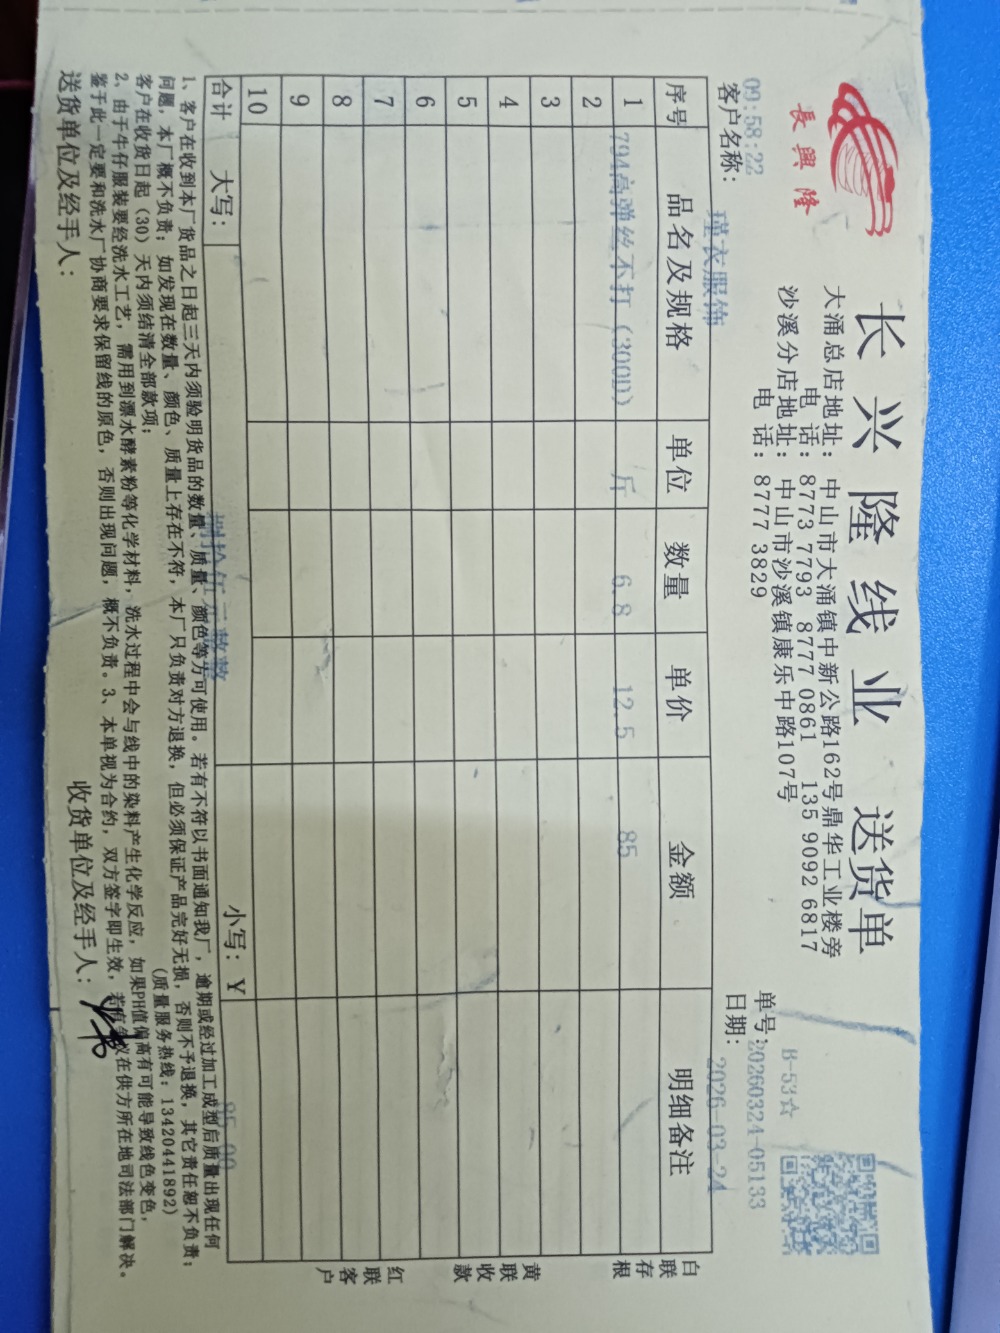 長興隆
长兴隆线业 送货单
大涌总店地址：中山市大涌镇中新公路162号鼎华工业楼旁
电 话：8773 7793 8777 0861 135 9092 6817
沙溪分店地址：中山市沙溪镇康乐中路107号
电 话：8777 3829
B-53☆
单号：20260324-05133
09:58:22
客户名称：瑾衣服饰
日期：2026-03-24
序号 品名及规格 单位 数量 单价 金额 明细备注
1 794高弹丝不打（300D） 斤 6.8 12.5 85
2
3
4
5
6
7
8
9
10
合计 大写：捌拾伍元整 小写：￥85.00
白联存根
黄联收款
红联客户
1、客户在收到本厂货品之日起三天内须验明货品的数量、质量、颜色等方可使用。若有不符以书面通知我厂，逾期或经过加工成型后质量出现任何
问题，本厂概不负责；如发现在数量、颜色、质量上存在不符，本厂只负责对方退换，但必须保证产品完好无损，否则不予退换，其它责任恕不负责；
客户在收货日起（30）天内须结清全部款项；（质量服务热线：13420441892）
2、由于牛仔服装要经洗水工艺，需用到漂水酵素粉等化学材料，洗水过程中会与线中的染料产生化学反应，如果PH值偏高有可能导致线色变色，
鉴于此一定要和洗水厂协商要求保留线的原色，否则出现问题，概不负责。3、本单视为合约，双方签字即生效，若有争议在供方所在地司法部门解决。
送货单位及经手人： 收货单位及经手人：